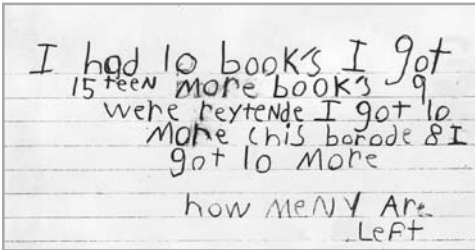 I had 10 book's I got
15 teen more book's 9
were reytende I got 10
More chis borode 8 I
got 10 more
how meNY Are
Left